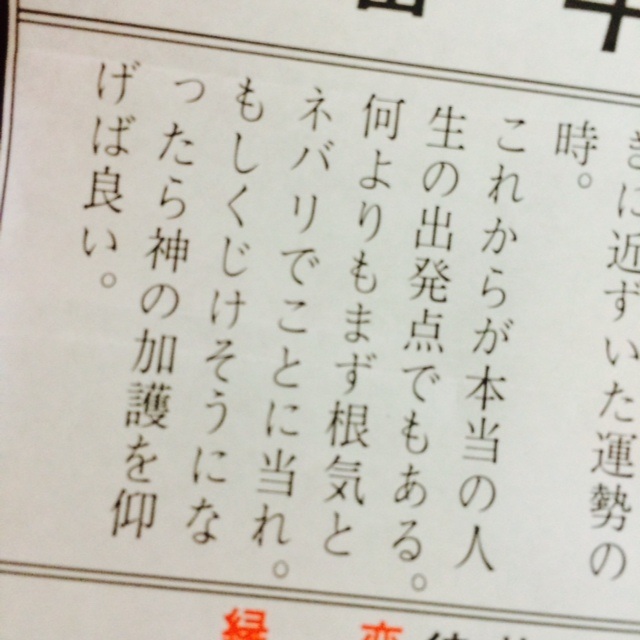 近ずいた運勢の
時。
これからが本当の人
生の出発点でもある。
何よりもまず根気と
ネバリでことに当れ。
もしくじけそうにな
つたらち神の加護を仰
げば良い。